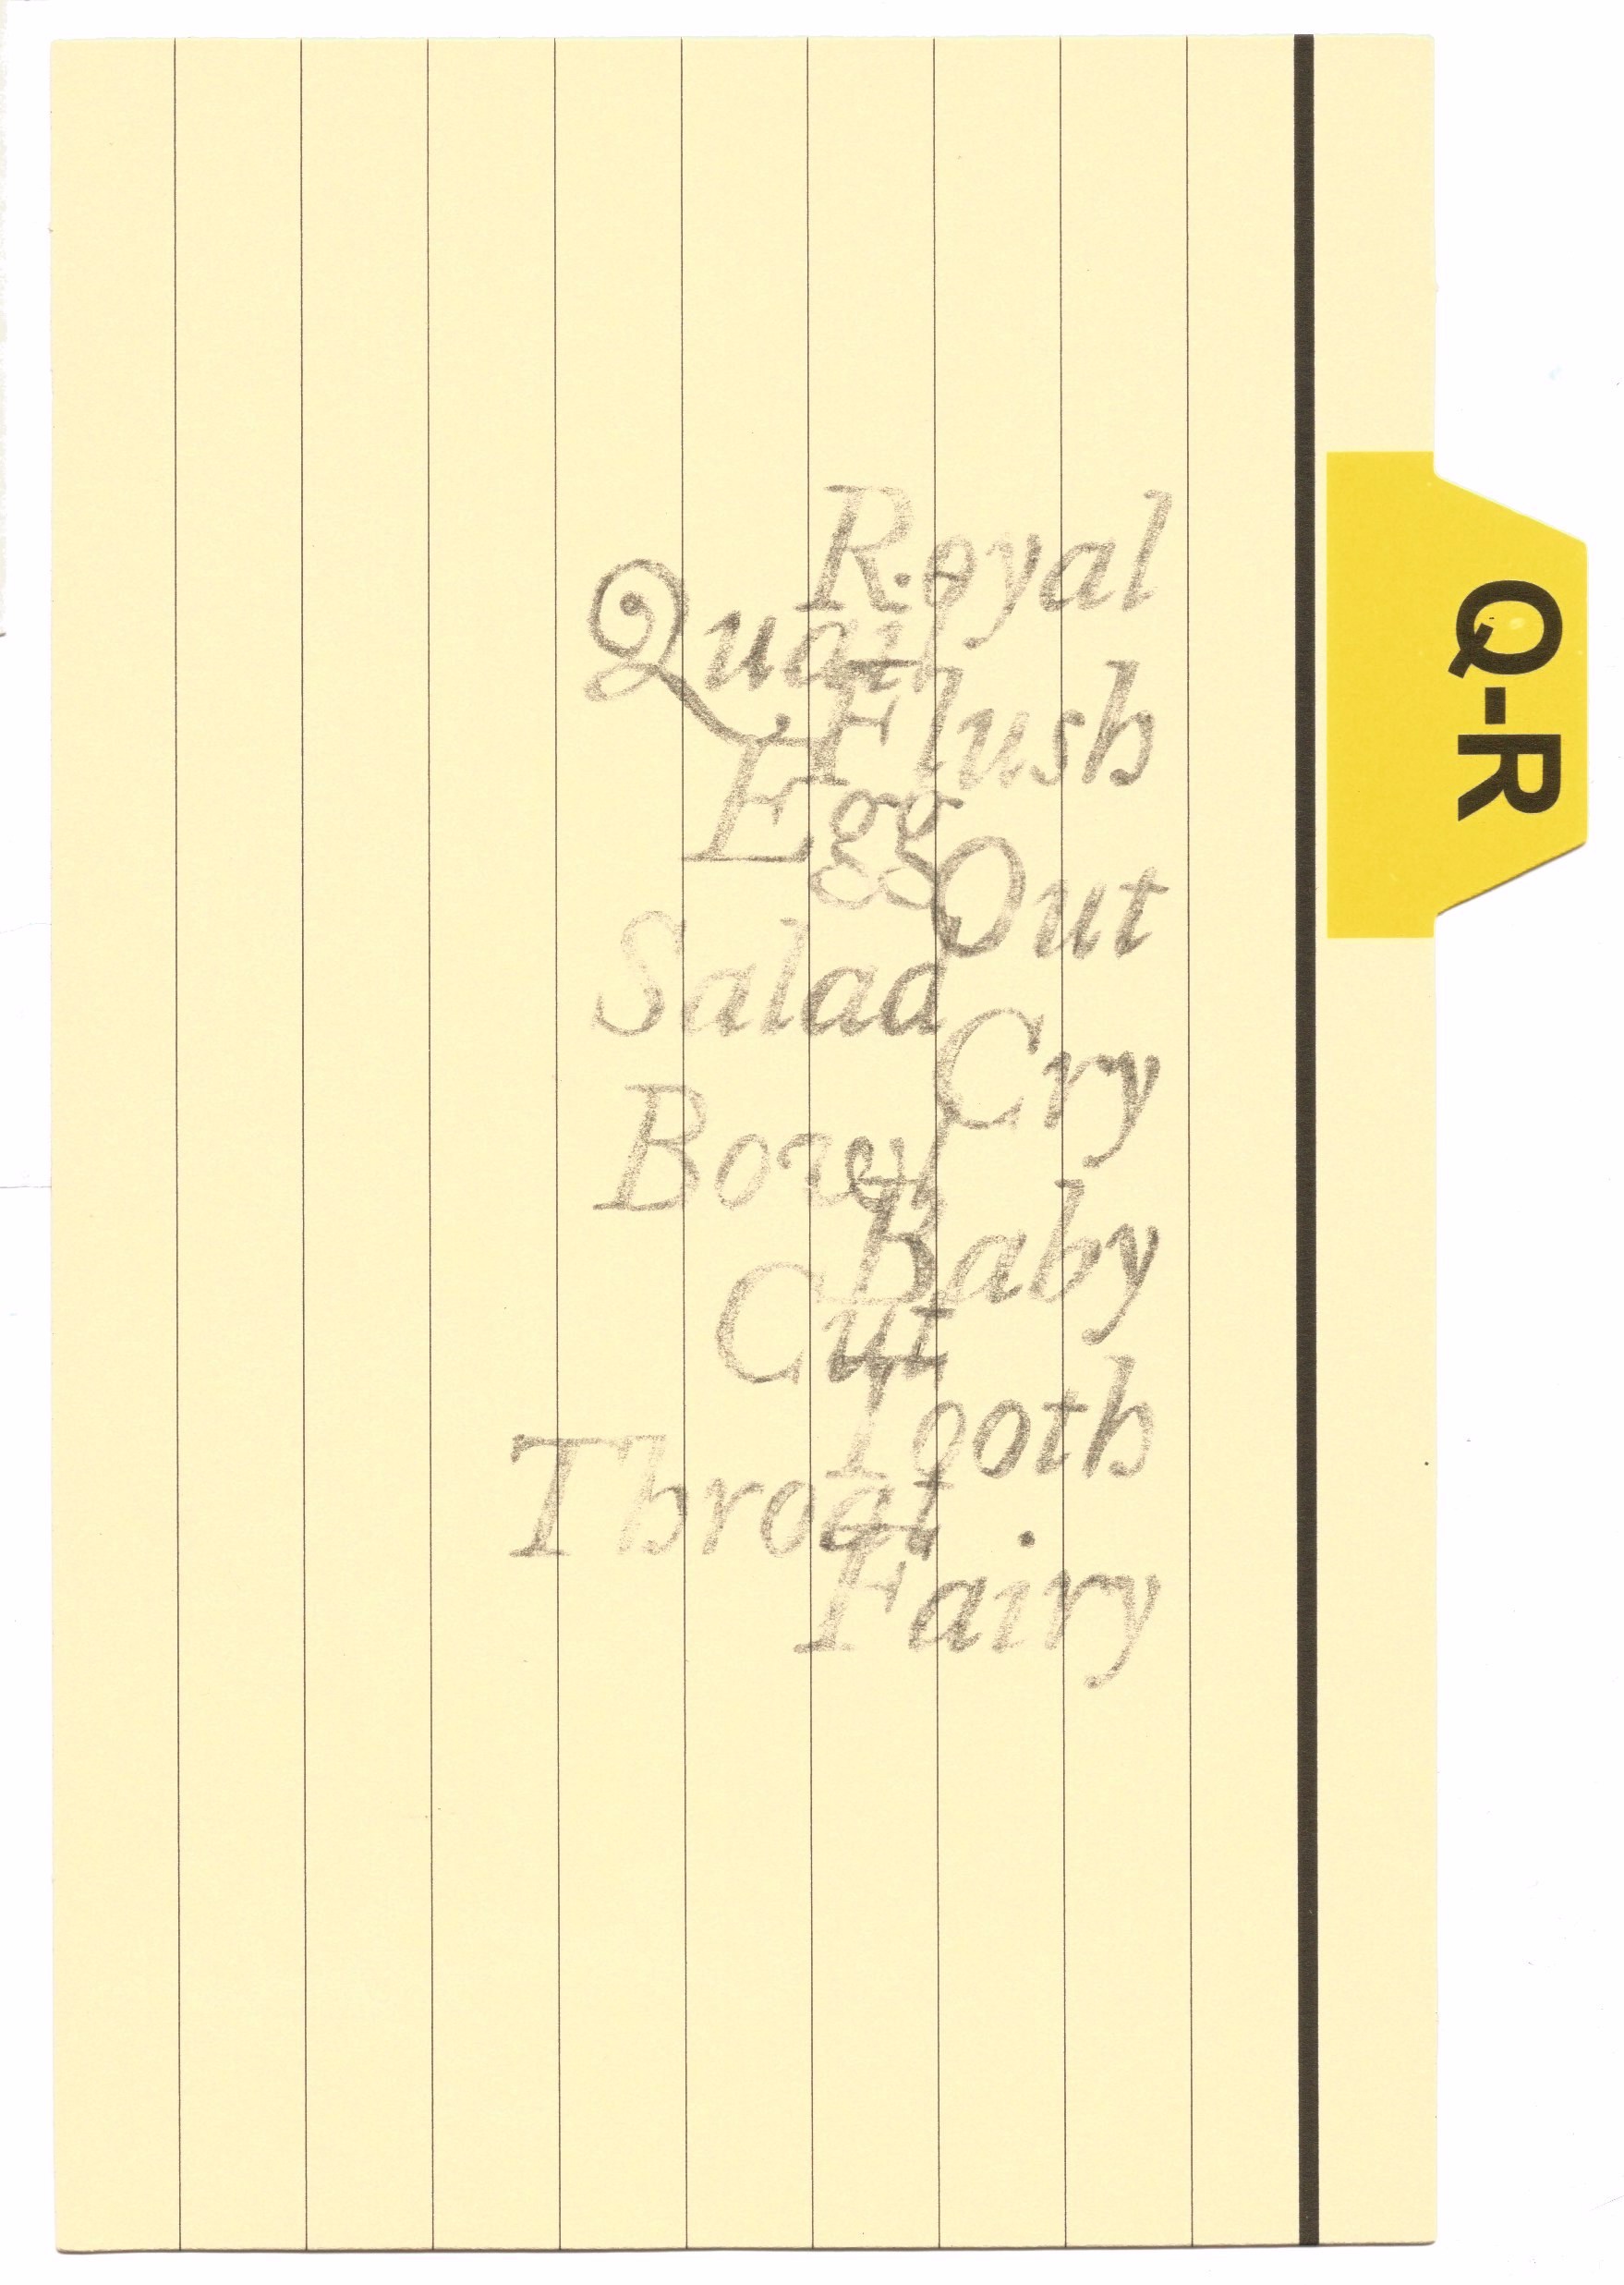 Q-R
Royal
Quail
Flush
Egg
Out
Salad
Cry
Bowl
Baby
Cut
Tooth
Throat
Fairy